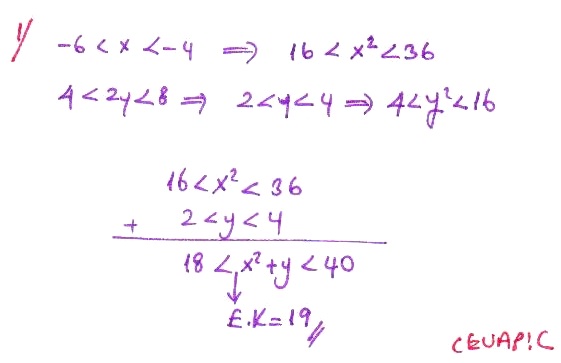 1/ -6 < x < -4 ⇒ 16 < x² < 36
4 < 2y < 8 ⇒ 2 < y < 4 ⇒ 4 < y² < 16
16 < x² < 36
+ 2 < y < 4
18 < x² + y < 40
E.K = 19 //
CEVAP: C